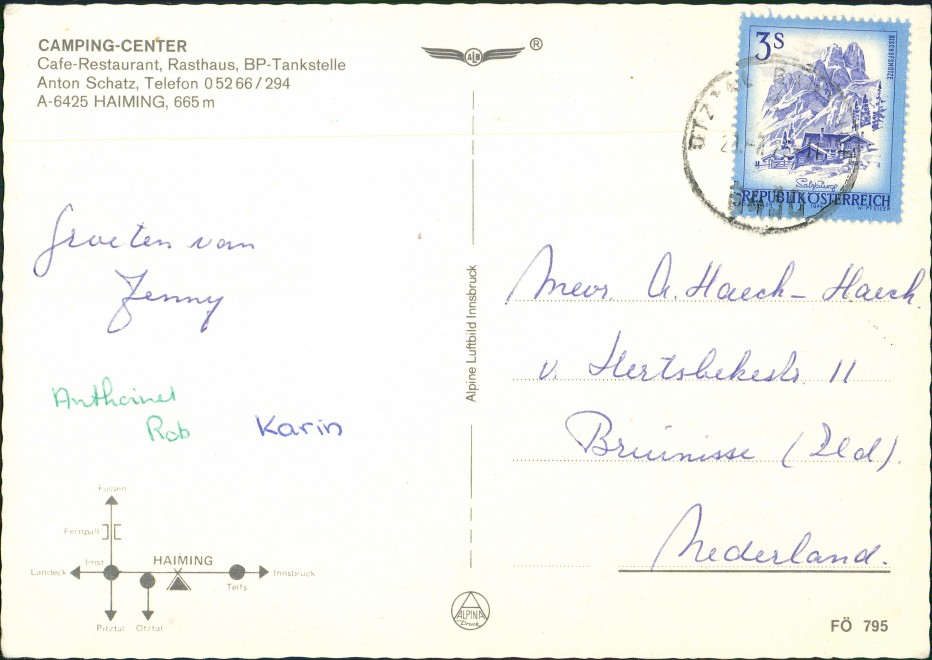 CAMPING-CENTER
Cafe-Restaurant, Rasthaus, BP-Tankstelle
Anton Schatz, Telefon 0 52 66 / 294
A-6425 HAIMING, 665 m
ALB
®
3 S
BISCHOFSMÜTZE
Salzburg
REPUBLIK ÖSTERREICH
W. PFEILER
Groeten van
Jenny
Rob
Karin
Alpine Luftbild Innsbruck
Mevr. A. Haeck - Haeck
v. Hertsbekestr. 11
Bruinisse (Zld).
Nederland.
Füssen
Fernpaß
Imst
HAIMING
Landeck
Innsbruck
Telfs
Pitztal
Ötztal
ALPINA
Druck
FÖ 795